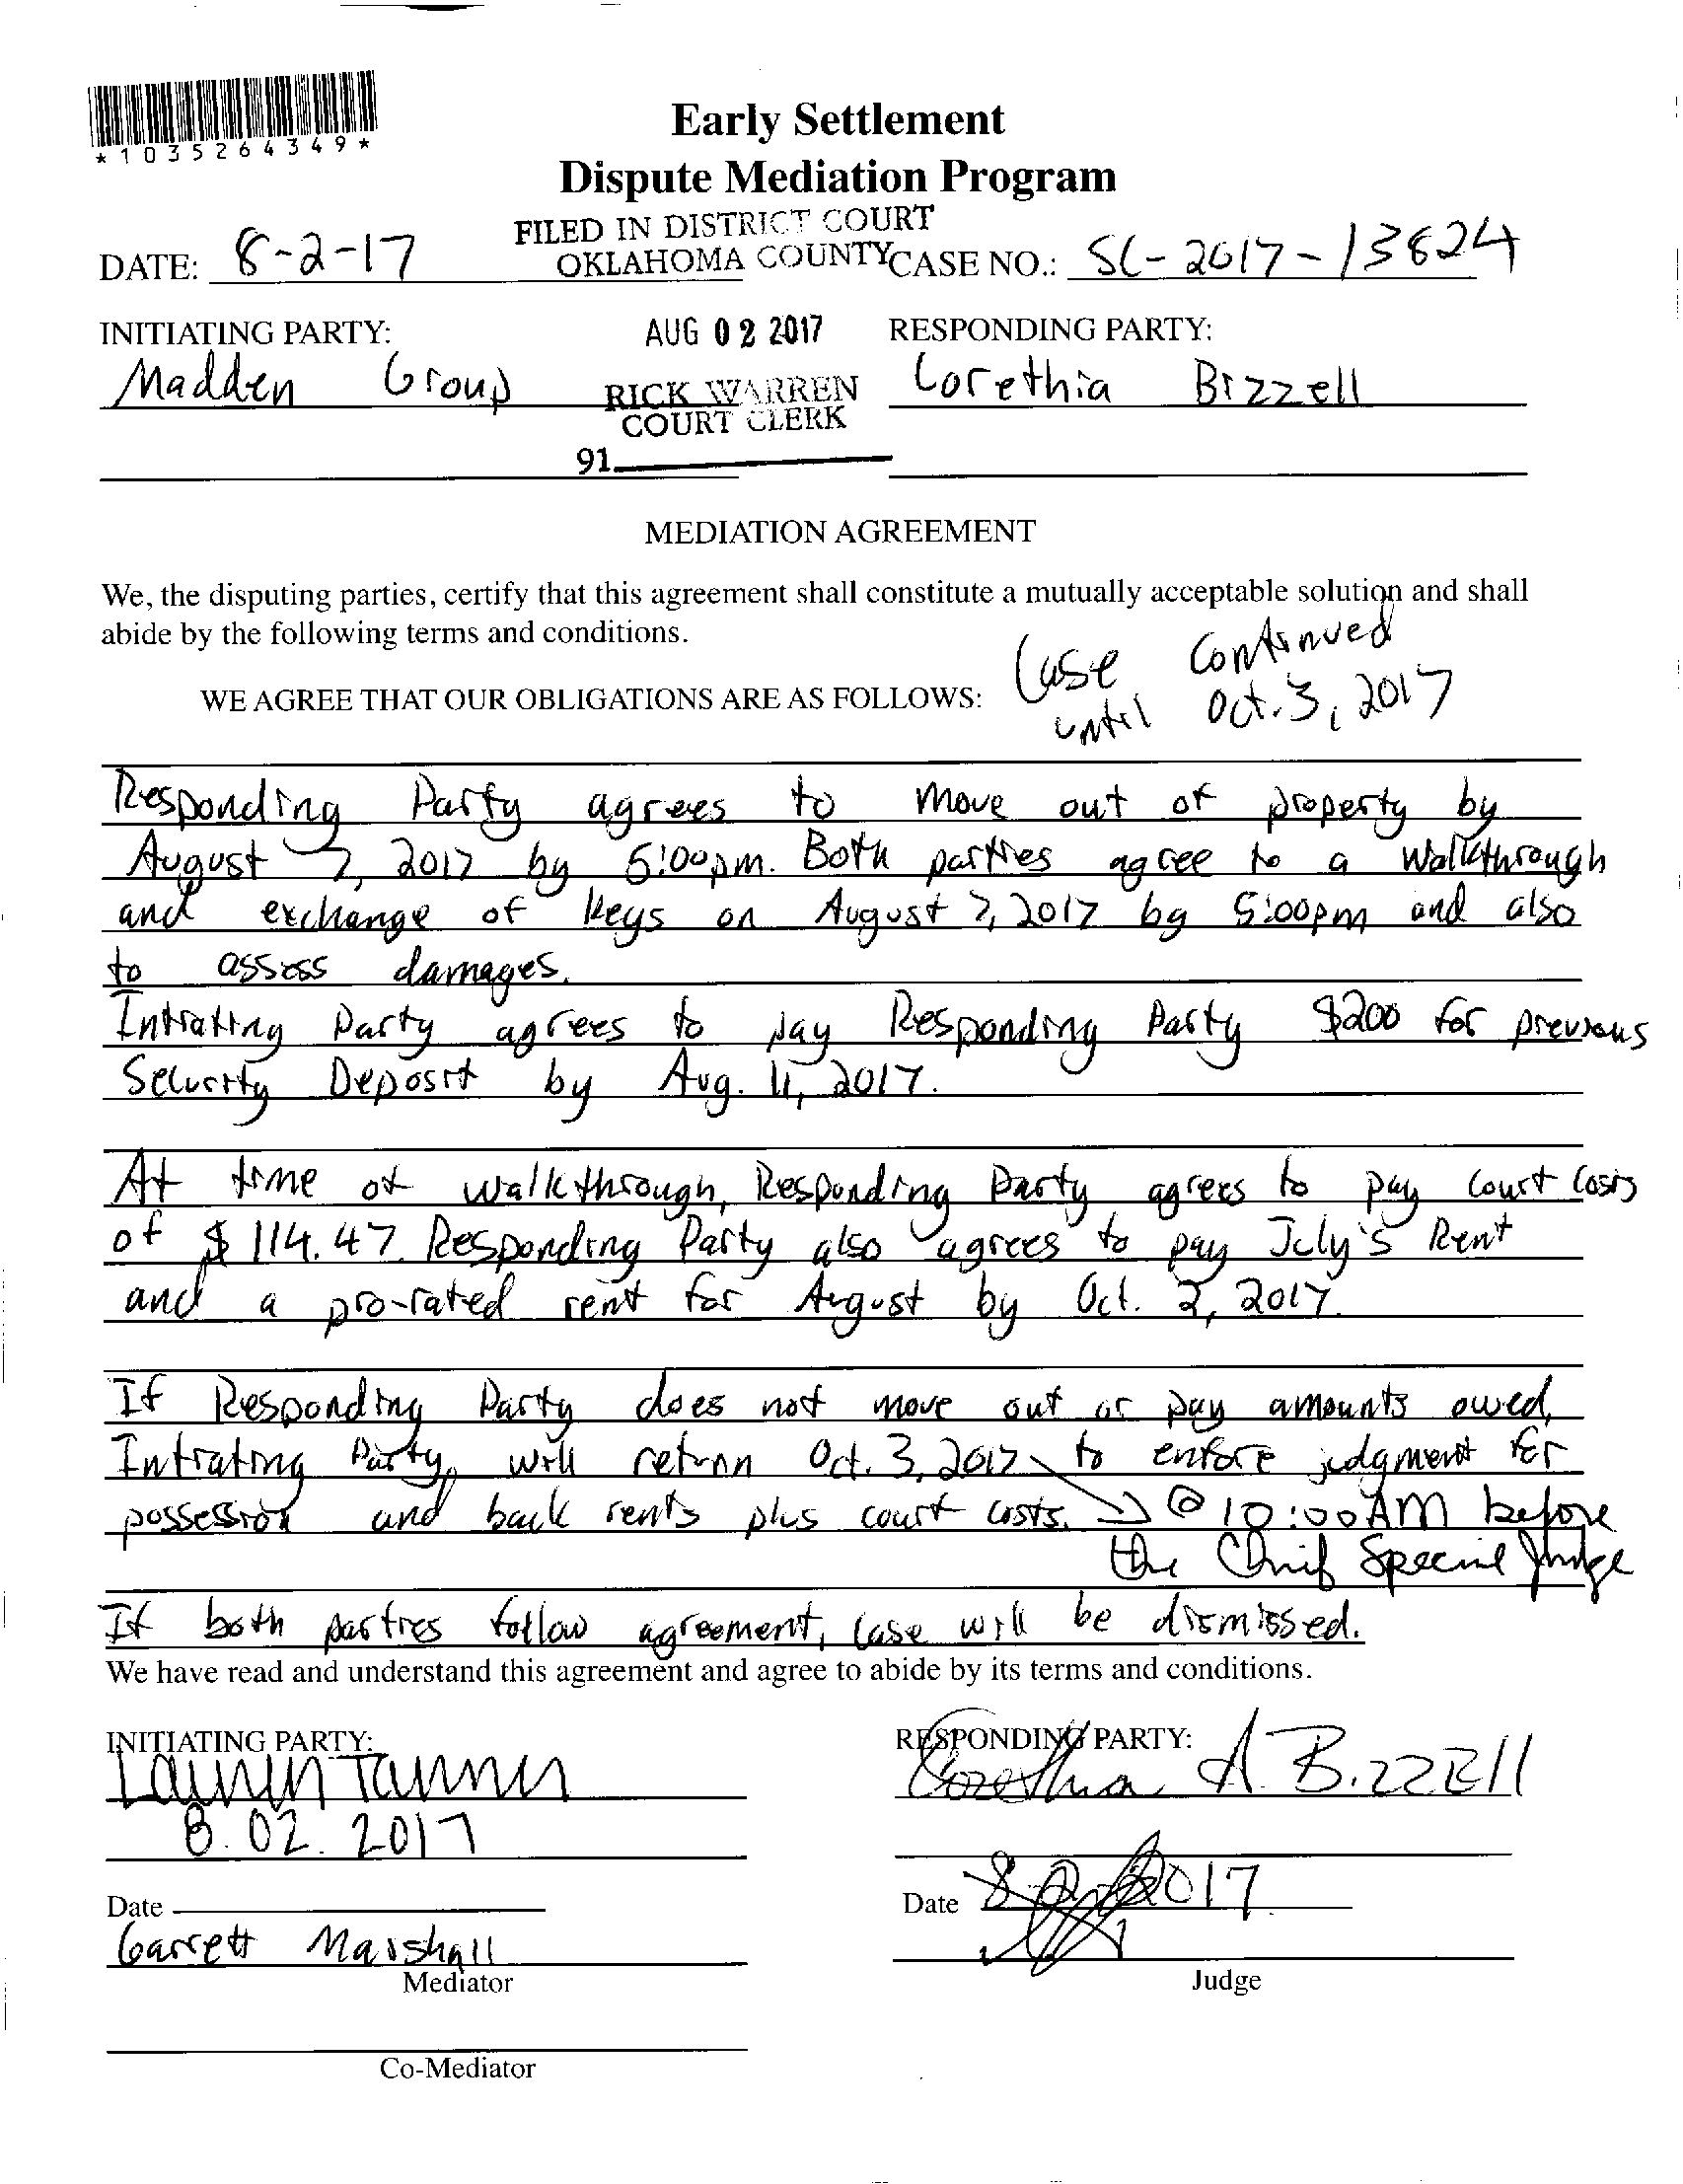 *1035264349*
Early Settlement
Dispute Mediation Program
FILED IN DISTRICT COURT
OKLAHOMA COUNTY
DATE: 8-2-17
CASE NO.: SC-2017-13824
INITIATING PARTY:
AUG 02 2017
RESPONDING PARTY:
Madden Group
RICK WARREN
COURT CLERK
Corethia Bizzell
91
MEDIATION AGREEMENT
We, the disputing parties, certify that this agreement shall constitute a mutually acceptable solution and shall
abide by the following terms and conditions.
Case Continued
until Oct. 3, 2017
WE AGREE THAT OUR OBLIGATIONS ARE AS FOLLOWS:
Responding Party agrees to move out of property by
August 7, 2017 by 5:00pm. Both parties agree to a Walkthrough
and exchange of keys on August 7, 2017 by 5:00pm and also
to assess damages.
Initiating Party agrees to pay Responding Party $200 for previous
Security Deposit by Aug. 11, 2017.
At time of walkthrough, Responding Party agrees to pay court costs
of $114.47. Responding Party also agrees to pay July's Rent
and a pro-rated rent for August by Oct. 2, 2017.
If Responding Party does not move out or pay amounts owed,
Initiating Party, will return Oct. 3, 2017 to enforce judgment for
possession and back rents plus court costs. → @ 10:00 AM before
the Chief Special Judge
If both parties follow agreement, case will be dismissed.
We have read and understand this agreement and agree to abide by its terms and conditions.
INITIATING PARTY:
Lauren Tanner
8.02.2017
RESPONDING PARTY:
Corethia A. Bizzell
Date
Date 8 2 2017
Garrett Marshall
Mediator
Judge
Co-Mediator